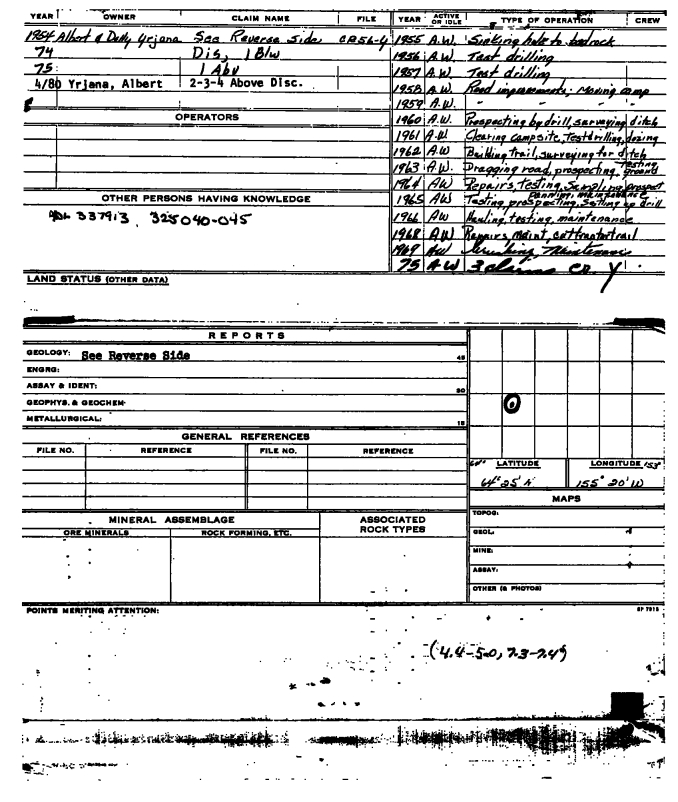 YEAR OWNER CLAIM NAME FILE YEAR ACTIVE OR IDLE TYPE OF OPERATION CREW
1954 Albert & Dolly Yrjana See Reverse Side CR56-4 1955 A.W. Sinking hole to bedrock
74 Dis, 1 Blw 1956 A.W. Test drilling
75 1 Abv 1957 A.W. Test drilling
4/80 Yrjana, Albert 2-3-4 Above Disc. 1958 A.W. Road improvements; Moving camp
1959 A.W. " " "
OPERATORS 1960 A.W. Prospecting by drill, surveying ditch
1961 A.W. Clearing campsite, Testdrilling, dozing
1962 A.W. Building trail, surveying for ditch
1963 A.W. Dragging road, prospecting, testing ground
1964 AW Repairs, testing, Sampling prospect
OTHER PERSONS HAVING KNOWLEDGE 1965 AW Testing, prospecting, Setting up drill
337913, 325040-045 1966 AW Hauling, testing, maintenance
1968 AW Repairs, Maint, cattractortrail
1969 AW Maintenance
75 AW 3 claims CR. Y
LAND STATUS (OTHER DATA)
REPORTS
GEOLOGY: See Reverse Side 45
ENGRG:
ASSAY & IDENT: 30
GEOPHYS. & GEOCHEM:
METALLURGICAL: 15
GENERAL REFERENCES
FILE NO. REFERENCE FILE NO. REFERENCE
LATITUDE LONGITUDE 153°
64° 25' N 155° 20' W
MAPS
MINERAL ASSEMBLAGE ASSOCIATED ROCK TYPES
ORE MINERALS ROCK FORMING, ETC.
TOPOG:
GEOL:
MINE:
ASSAY:
OTHER (& PHOTOS)
POINTS MERITING ATTENTION:
(4.4-5.0, 7.3-7.4)